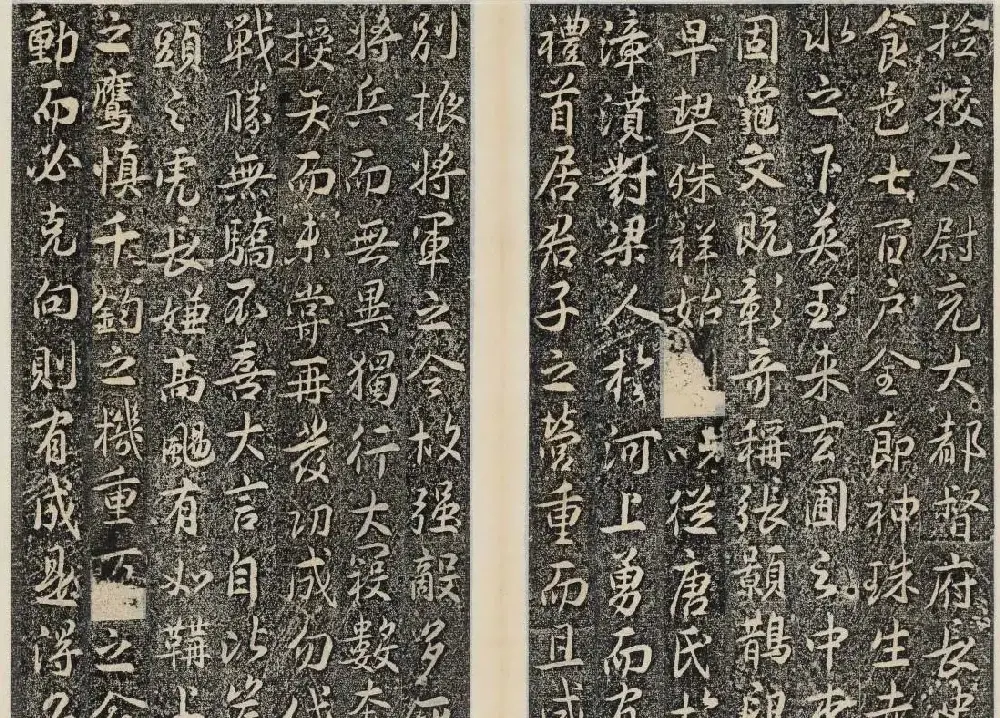 捡挍太尉兖大都督府長
食邑七百户全節神珠生
水之下英玉来玄圃之中
固龜文既彰奇稱張顥鵲印
早契殊祥始以従唐氏於
漳濆對梁人於河上勇而有
禮首居君子之營重而且
別振將軍之令故强敵多
將兵而無異獨行大寇數
授天而未嘗再發功成勿伐
戦勝無驕不喜大言自比
頭之虎長嫌高颺有如鞲上
之鷹慎千鈞之機重之金
動而必克向則有成是得